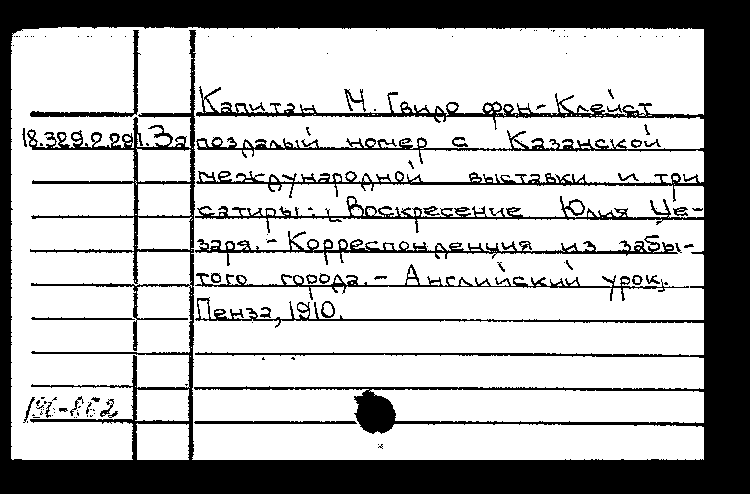 Капитан М. Гвидо фон-Клейст
18.329.2.29 1.3а поздалый номер с Казанской
международной выставки и три
сатиры: Воскресение Юлия Це-
заря.- Корреспонденция из забы-
того города.- Английский урок.
Пенза, 1910.
196-862